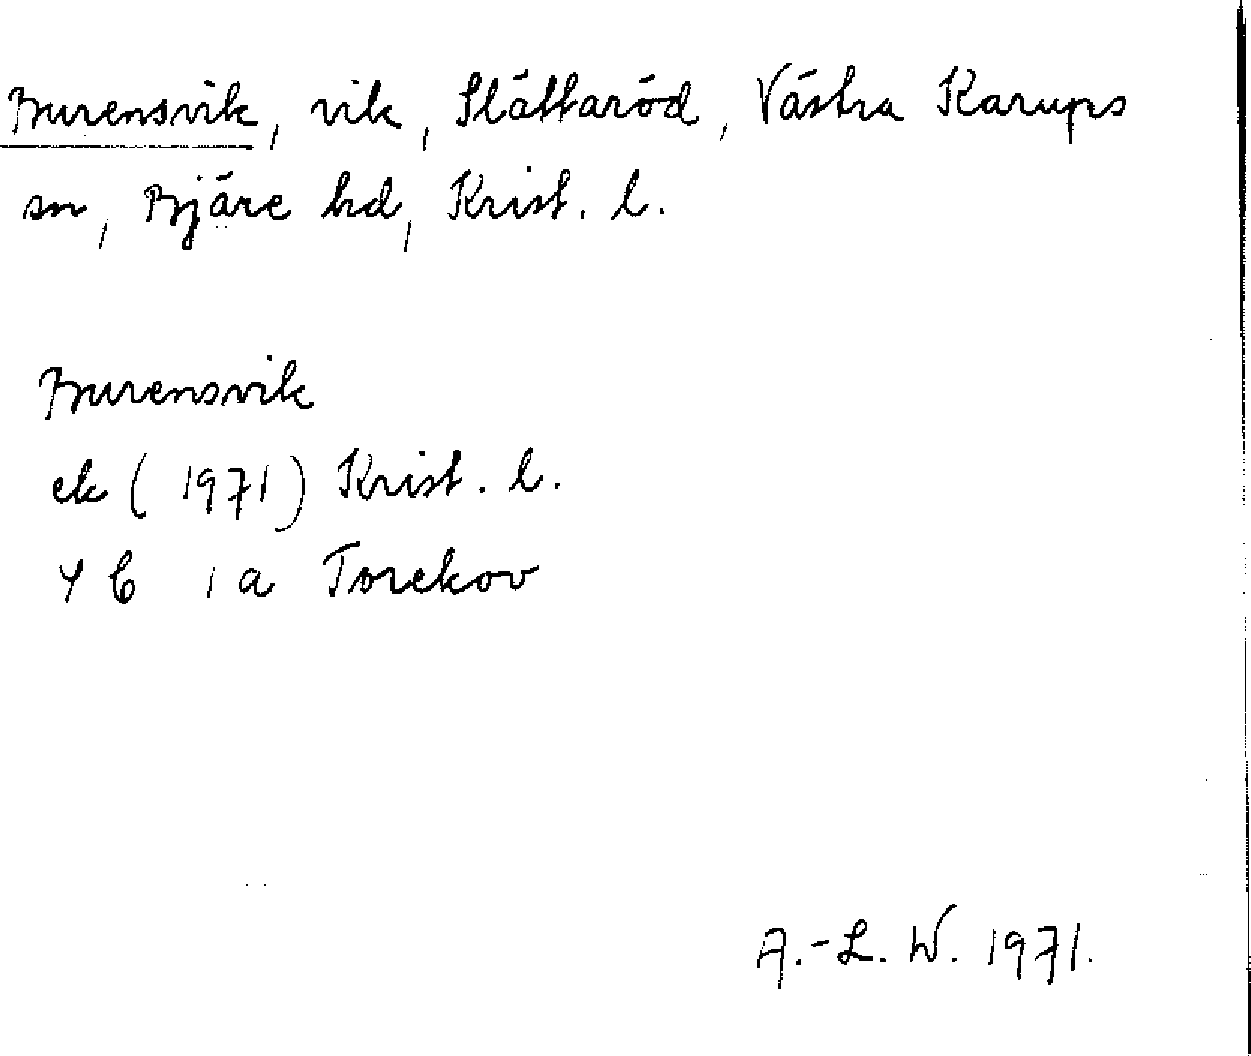 Burensvik, vik, Slättaröd, Västra Karups
sn, Bjäre hd, Krist. l.
Burensvik
ek (1971) Krist. l.
4 C 1 a Torekov
A.-L. W. 1971.